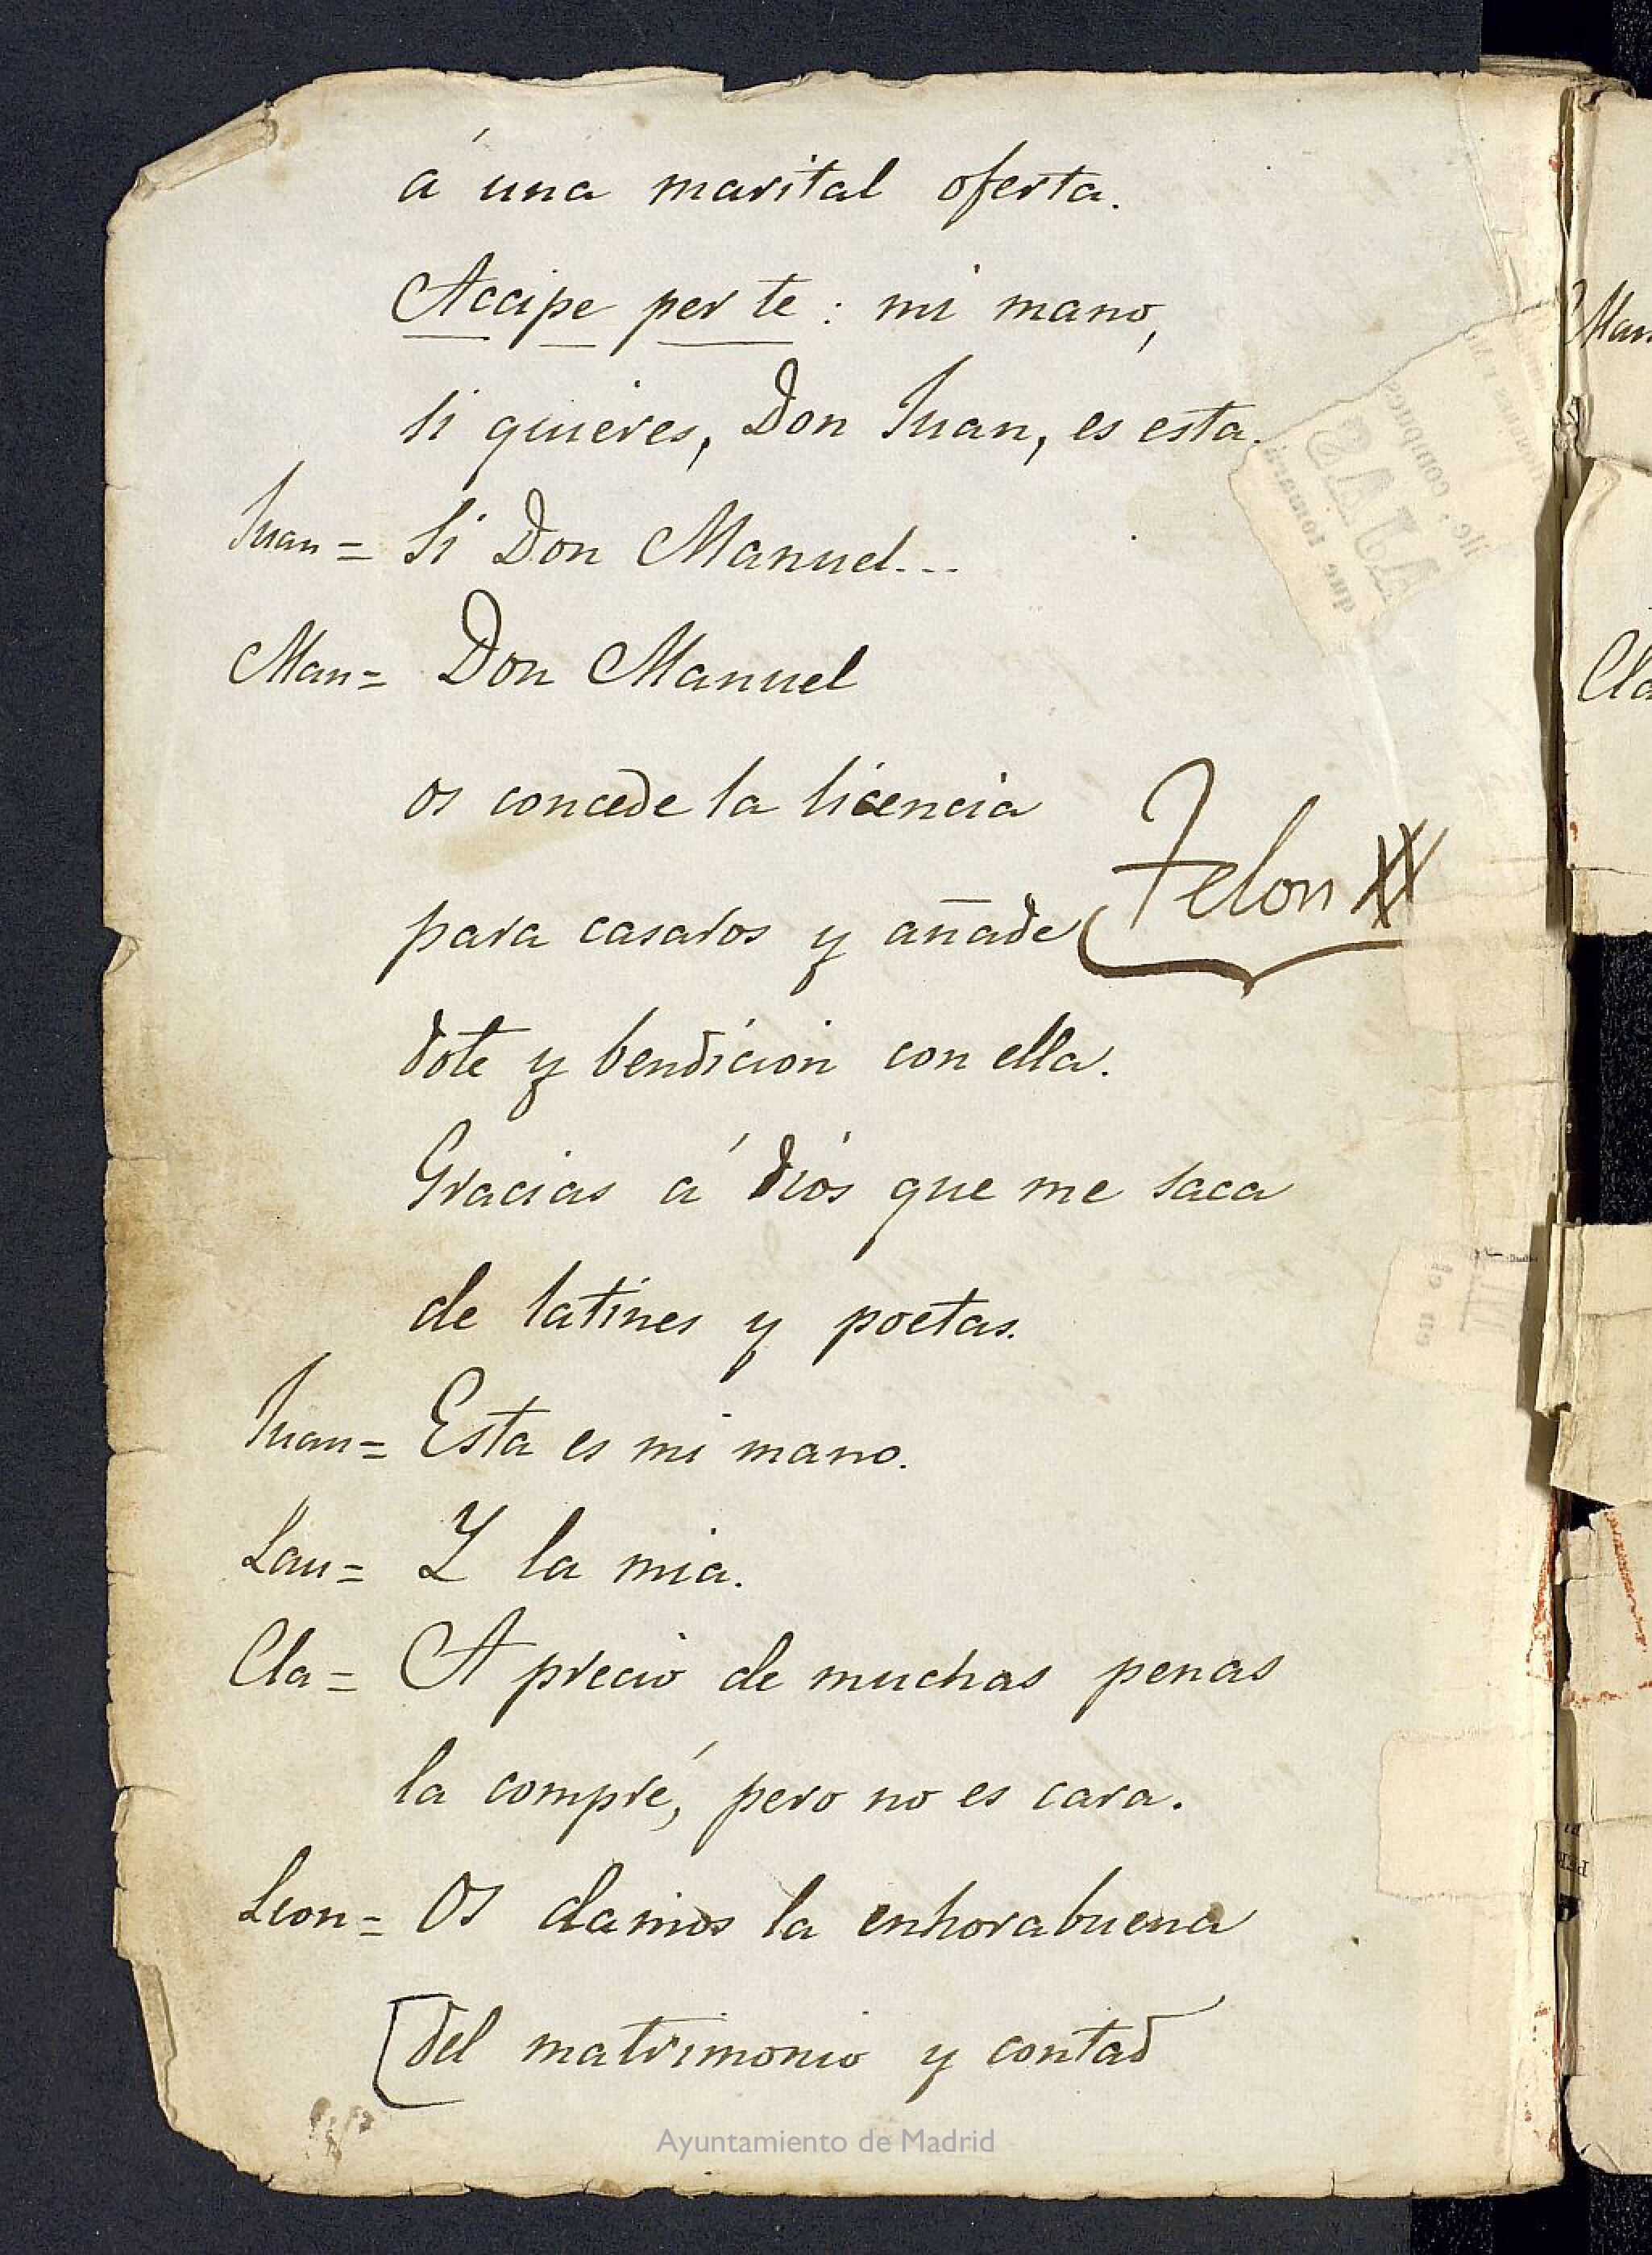 á una marital oferta.
Accipe per te: mi mano,
si quieres, Don Juan, es esta.
Juan = Si Don Manuel...
Man = Don Manuel
os concede la licencia
Telon
para casaros y añade
dote y bendicion con ella.
Gracias á dios que me saca
de latines y poetas.
Juan = Esta es mi mano.
Lau = Y la mia.
Cla = A precio de muchas penas
la compré, pero no es cara.
Leon = Os damos la enhorabuena
del matrimonio y contad
Ayuntamiento de Madrid
Man
Cla